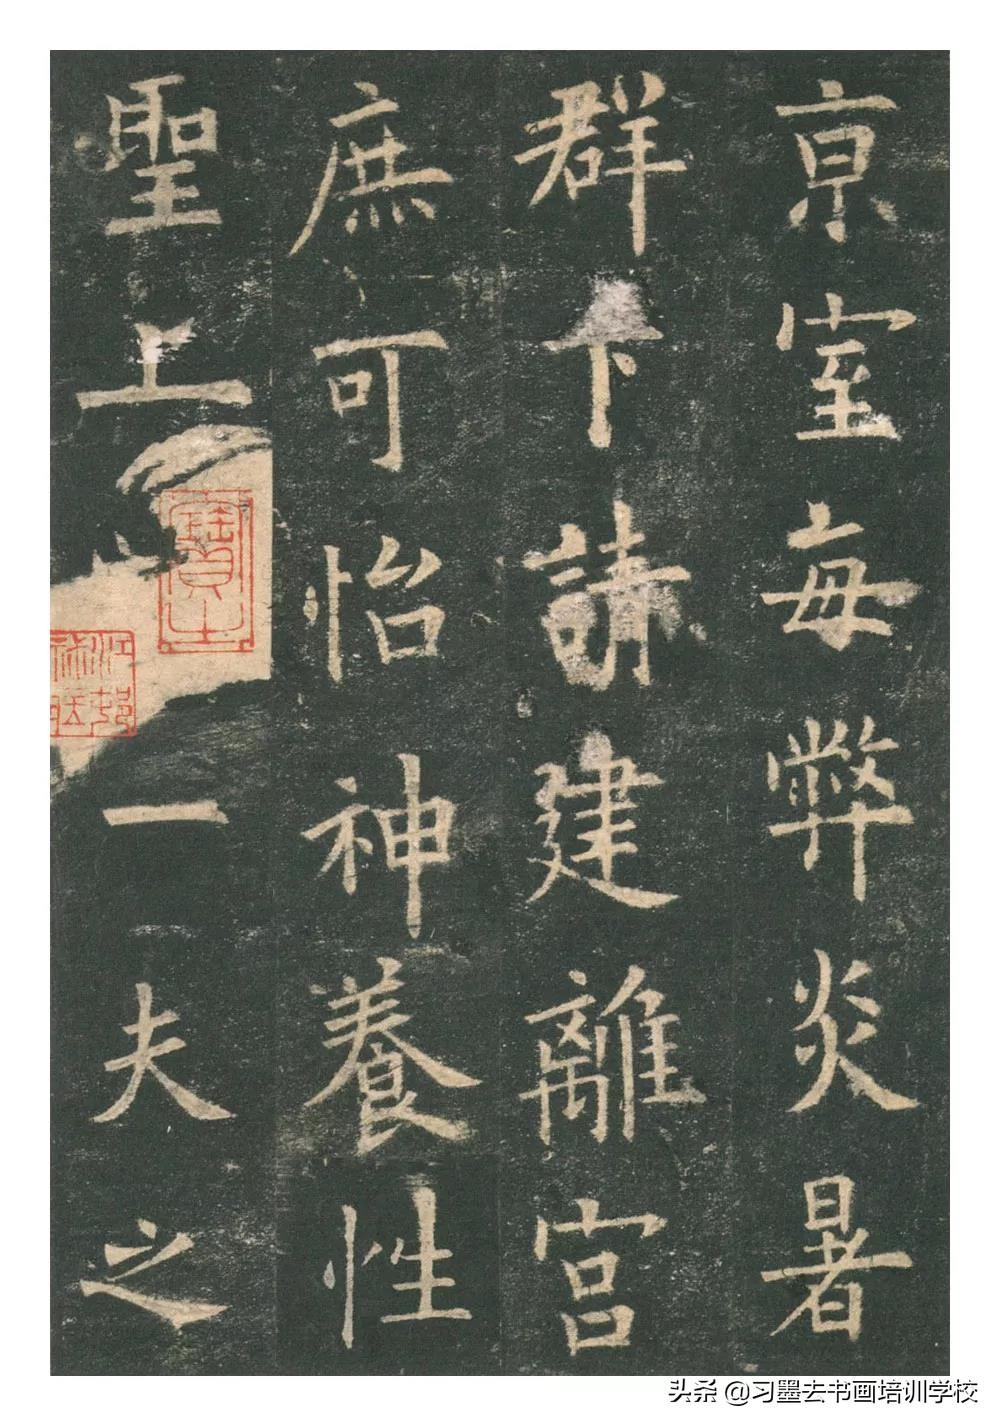 亰室每弊炎暑
群下請建離宮
庶可怡神養性
聖上一夫之
头条 @习墨去书画培训学校